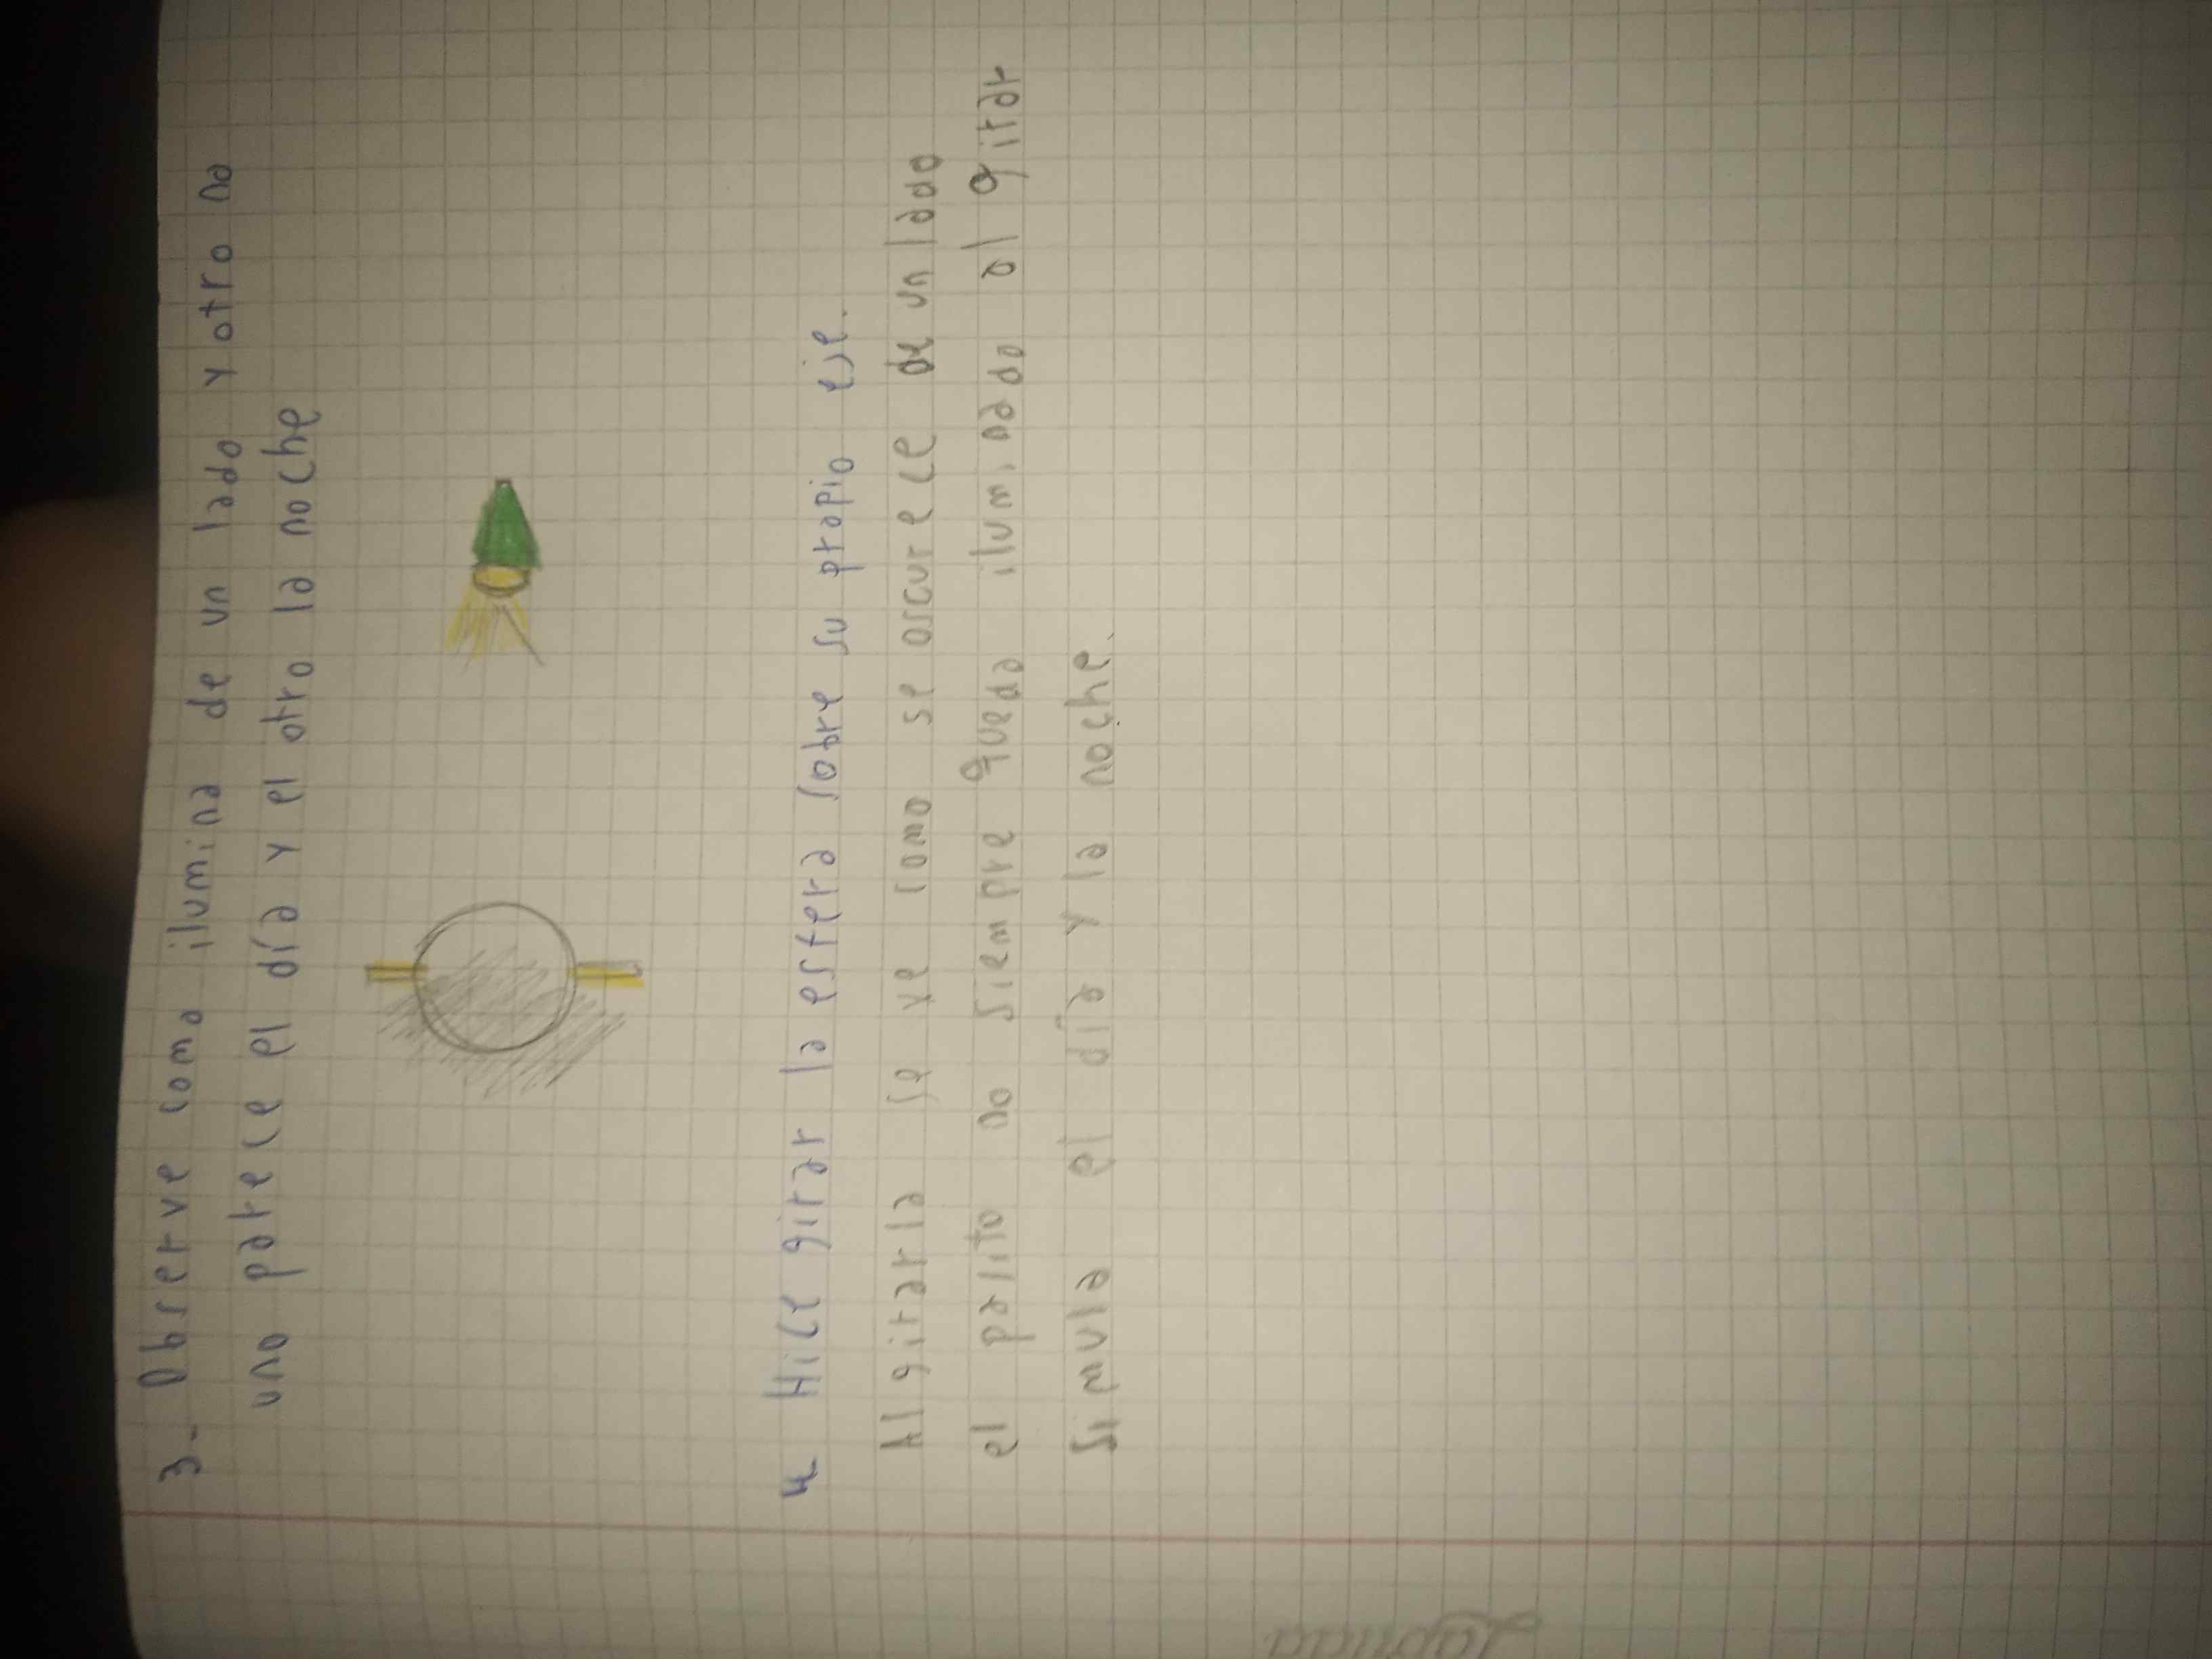 3- Observe como ilumina de un lado y otro no
uno parece el día y el otro la noche
4 Hice girar la esfera sobre su propio eje.
Al girarla se ve como se oscurece de un lado
el palito no siempre queda iluminado al girar
simula el día y la noche.